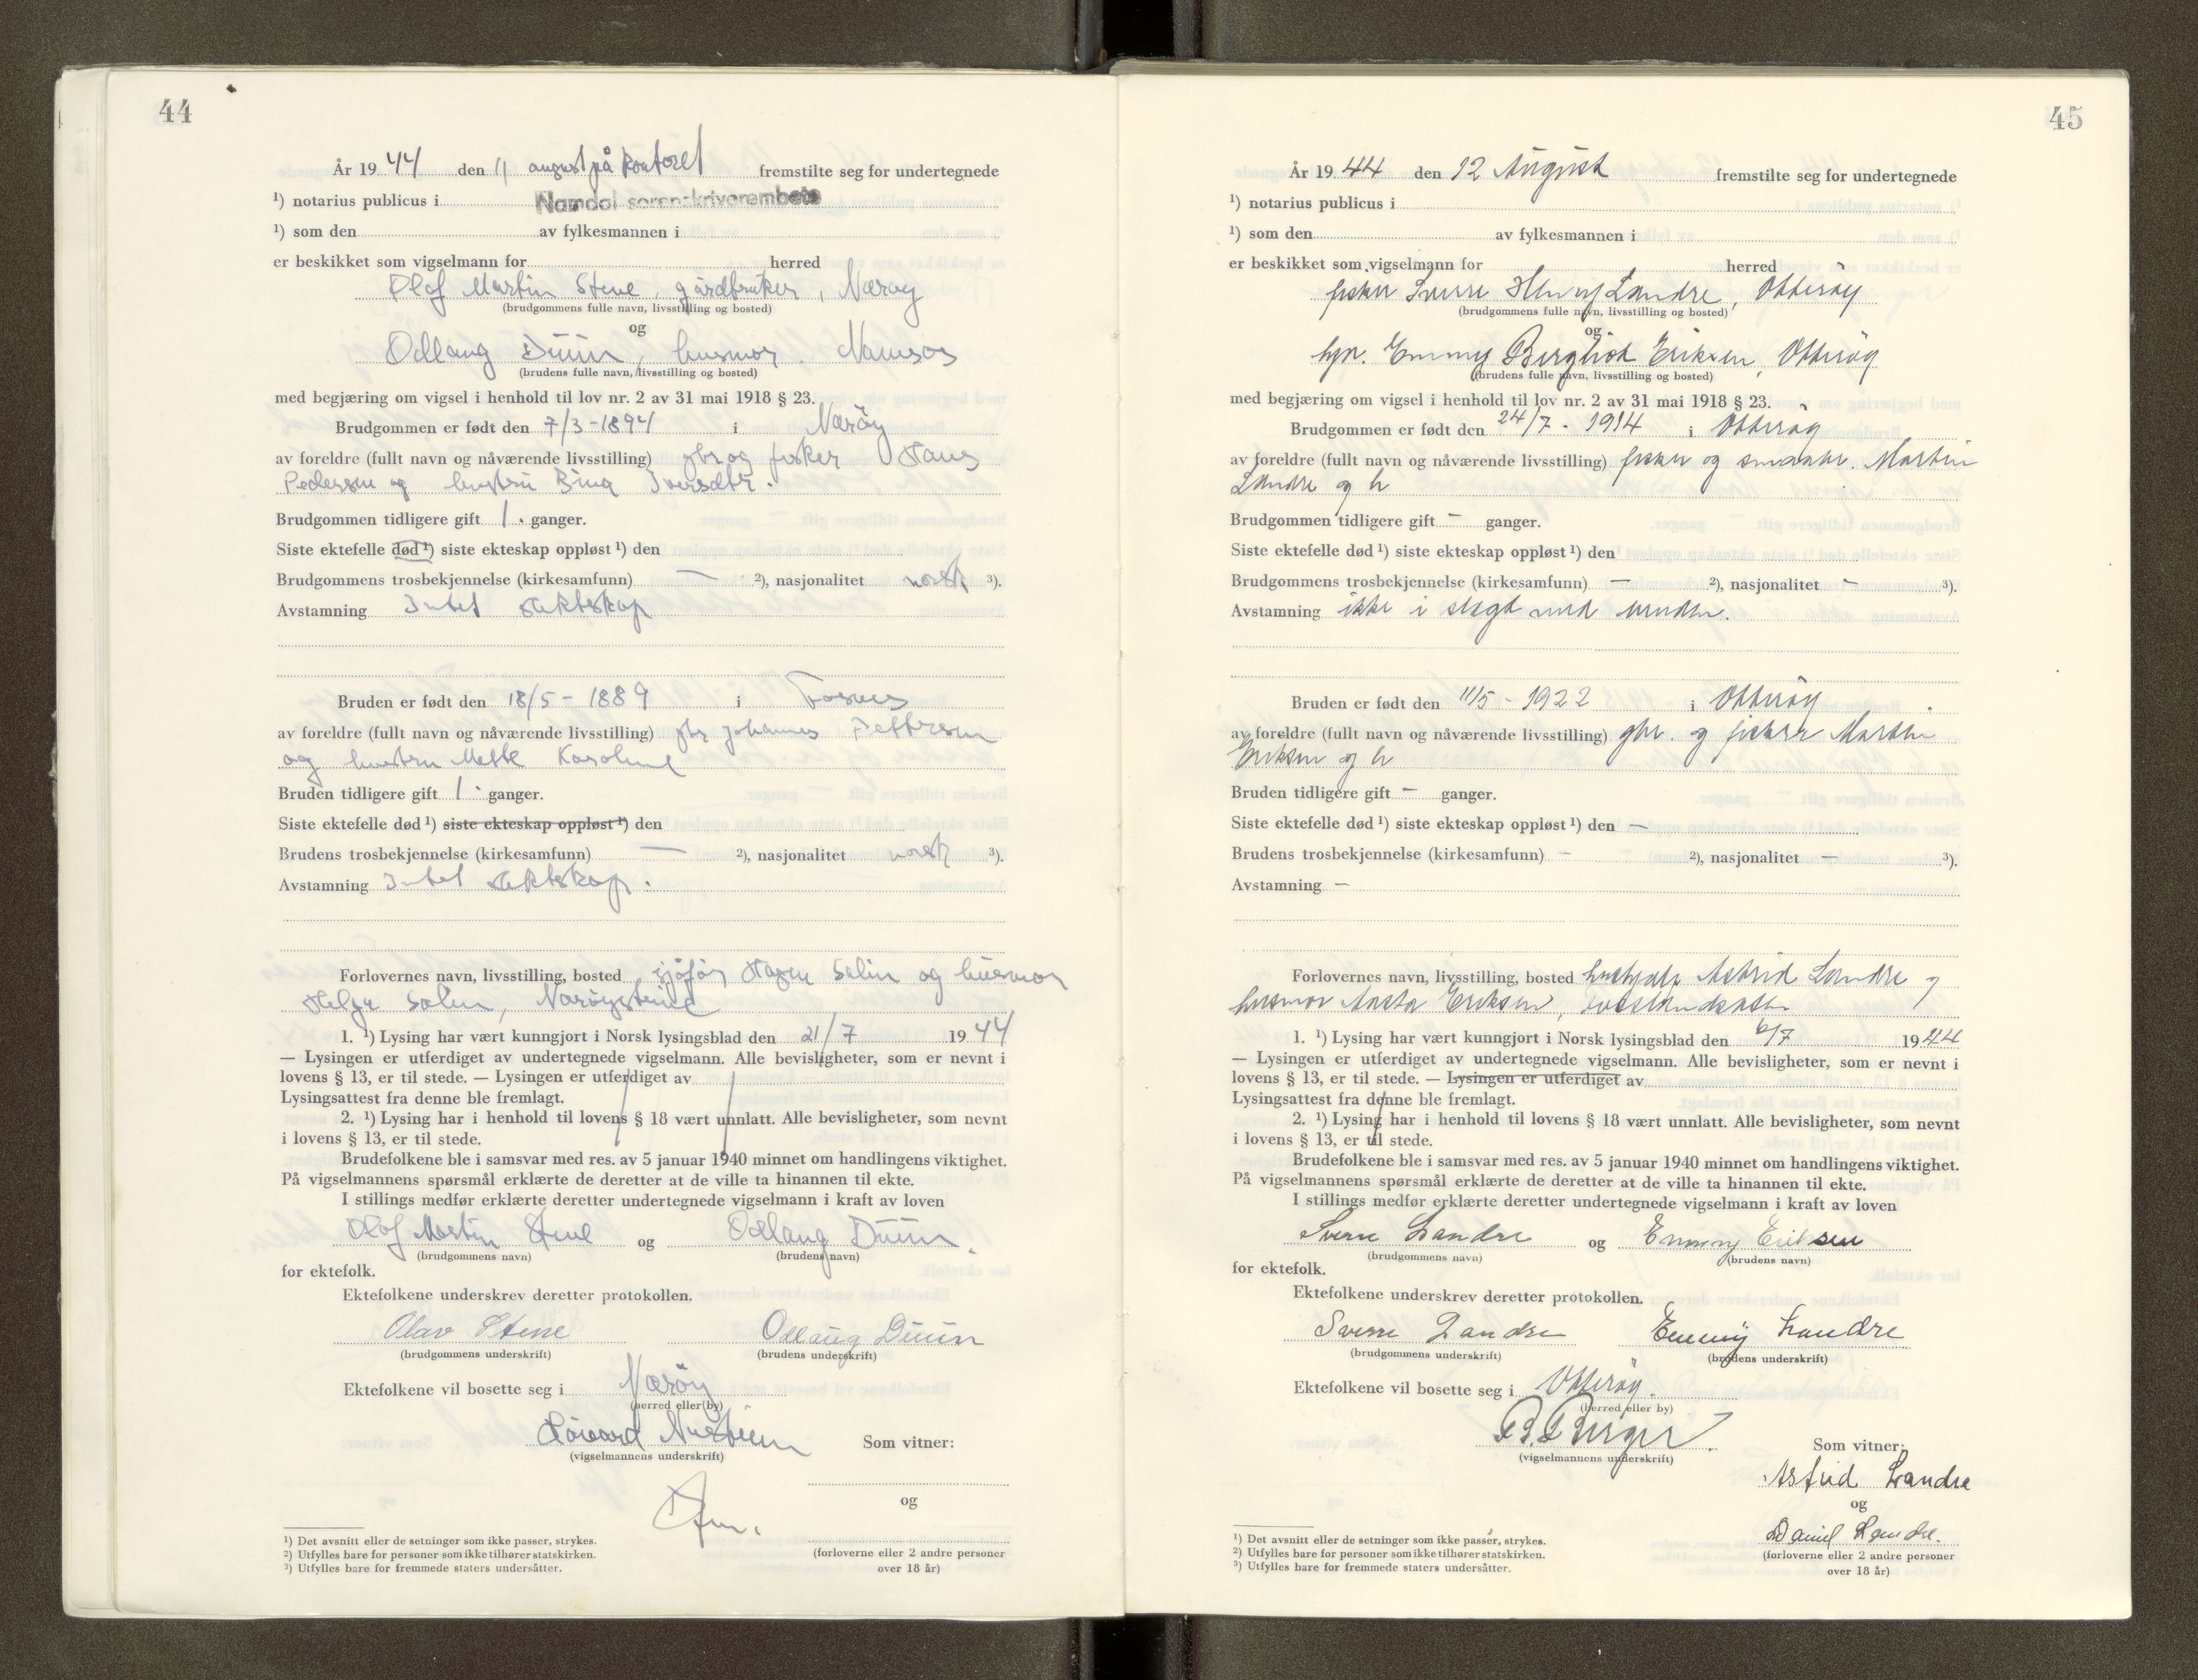 44
År 1944 den 11 august på kontoret fremstilte seg for undertegnede
¹) notarius publicus i Namdal sorenskriverembete
¹) som den av fylkesmannen i
er beskikket som vigselmann for herred
Olaf Martin Stene, gårdbruker, Nærøy
(brudgommens fulle navn, livsstilling og bosted)
og
Odlaug Duun, husmor. Namsos
(brudens fulle navn, livsstilling og bosted)
med begjæring om vigsel i henhold til lov nr. 2 av 31 mai 1918 § 23.
Brudgommen er født den 7/3-1894 i Nærøy
av foreldre (fullt navn og nåværende livsstilling) gbr og fisker Hans
Pedersen og hustru Iversdtr.
Brudgommen tidligere gift 1. ganger.
Siste ektefelle død ¹) siste ekteskap oppløst ¹) den
Brudgommens trosbekjennelse (kirkesamfunn) — ²), nasjonalitet norsk ³).
Avstamning Intet slektskap
Bruden er født den 18/5-1889 i Fosnes
av foreldre (fullt navn og nåværende livsstilling) gbr Johannes Pettersen
og hustru Mette Karoline
Bruden tidligere gift 1. ganger.
Siste ektefelle død ¹) siste ekteskap oppløst ¹) den
Brudens trosbekjennelse (kirkesamfunn) — ²), nasjonalitet norsk ³).
Avstamning Intet slektskap.
Forlovernes navn, livsstilling, bosted sjåfør Hagen Solin og husmor
Helga Solin, Nærøy
1. ¹) Lysing har vært kunngjort i Norsk lysingsblad den 21/7 1944
— Lysingen er utferdiget av undertegnede vigselmann. Alle bevisligheter, som er nevnt i
lovens § 13, er til stede. — Lysingen er utferdiget av
Lysingsattest fra denne ble fremlagt.
2. ¹) Lysing har i henhold til lovens § 18 vært unnlatt. Alle bevisligheter, som nevnt
i lovens § 13, er til stede.
Brudefolkene ble i samsvar med res. av 5 januar 1940 minnet om handlingens viktighet.
På vigselmannens spørsmål erklærte de deretter at de ville ta hinannen til ekte.
I stillings medfør erklærte deretter undertegnede vigselmann i kraft av loven
Olaf Martin Stene og Odlaug Duun.
(brudgommens navn) (brudens navn)
for ektefolk.
Ektefolkene underskrev deretter protokollen.
Olav Stene Odlaug Duun
(brudgommens underskrift) (brudens underskrift)
Ektefolkene vil bosette seg i Nærøy
(herred eller by)
Håvard
(vigselmannens underskrift)
Som vitner:
og
¹) Det avsnitt eller de setninger som ikke passer, strykes.
²) Utfylles bare for personer som ikke tilhører statskirken.
³) Utfylles bare for fremmede staters undersåtter.
(forloverne eller 2 andre personer
over 18 år)
45
År 1944 den 12 August fremstilte seg for undertegnede
¹) notarius publicus i
¹) som den av fylkesmannen i
er beskikket som vigselmann for herred
fisker Sverre Henry Landre, Otterøy
(brudgommens fulle navn, livsstilling og bosted)
og
hjv. Emmy Bergliot Eriksen, Otterøy
(brudens fulle navn, livsstilling og bosted)
med begjæring om vigsel i henhold til lov nr. 2 av 31 mai 1918 § 23.
Brudgommen er født den 24/7 - 1914 i Otterøy
av foreldre (fullt navn og nåværende livsstilling) fisker og småbr. Martin
Landre og h
Brudgommen tidligere gift — ganger.
Siste ektefelle død ¹) siste ekteskap oppløst ¹) den
Brudgommens trosbekjennelse (kirkesamfunn) — ²), nasjonalitet — ³).
Avstamning ikke i slegt med bruden.
Bruden er født den 11/5 - 1922 i Otterøy
av foreldre (fullt navn og nåværende livsstilling) gbr. og fisker Martin
Eriksen og h
Bruden tidligere gift — ganger.
Siste ektefelle død ¹) siste ekteskap oppløst ¹) den —
Brudens trosbekjennelse (kirkesamfunn) — ²), nasjonalitet — ³).
Avstamning —
Forlovernes navn, livsstilling, bosted Astrid Landre og
husmor Aasta Eriksen,
1. ¹) Lysing har vært kunngjort i Norsk lysingsblad den 6/7 1944
— Lysingen er utferdiget av undertegnede vigselmann. Alle bevisligheter, som er nevnt i
lovens § 13, er til stede. — Lysingen er utferdiget av
Lysingsattest fra denne ble fremlagt.
2. ¹) Lysing har i henhold til lovens § 18 vært unnlatt. Alle bevisligheter, som nevnt
i lovens § 13, er til stede.
Brudefolkene ble i samsvar med res. av 5 januar 1940 minnet om handlingens viktighet.
På vigselmannens spørsmål erklærte de deretter at de ville ta hinannen til ekte.
I stillings medfør erklærte deretter undertegnede vigselmann i kraft av loven
Sverre Landre og Emmy Eriksen
(brudgommens navn) (brudens navn)
for ektefolk.
Ektefolkene underskrev deretter protokollen.
Sverre Landre Emmy Landre
(brudgommens underskrift) (brudens underskrift)
Ektefolkene vil bosette seg i Otterøy.
(herred eller by)
(vigselmannens underskrift)
Som vitner:
Astrid Landre
og
Daniel Landre.
¹) Det avsnitt eller de setninger som ikke passer, strykes.
²) Utfylles bare for personer som ikke tilhører statskirken.
³) Utfylles bare for fremmede staters undersåtter.
(forloverne eller 2 andre personer
over 18 år)